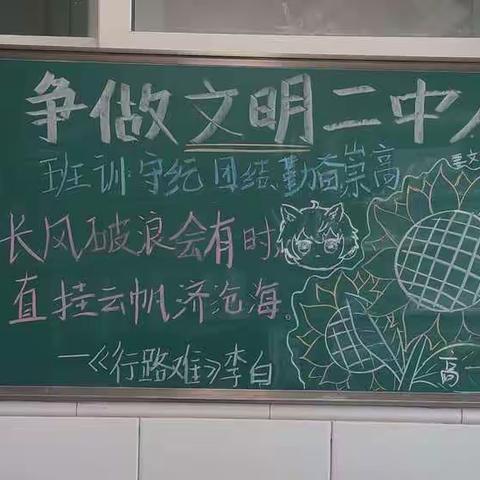 争做文明二中人
班训:守纪 团结 勤奋 崇高
长风破浪会有时,
直挂云帆济沧海。
—《行路难》李白
高一